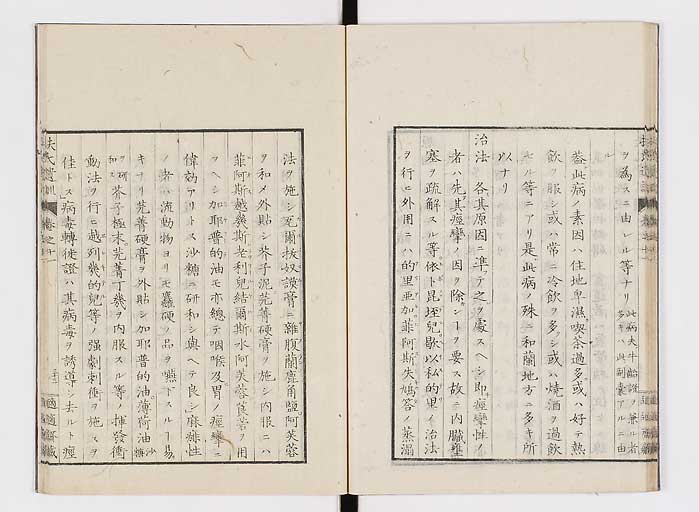 ヲ為スニ由レル等ナリ此病夫牛胎證ヲ兼ル者
多キハ此刺嚢アルニ由
蓋此病ノ素因ハ住地卑濕喫茶過多或ハ好テ熱
飲ヲ服シ或ハ常ニ冷飲ヲ多シ或ハ燒酒ヲ過飲
スル等ニアリ是此病ノ殊ニ和蘭地方ニ多キ所
以ナリ
治法 各其原因ニ準テ之ヲ處スヘシ即痙攣性ノ
者ハ先其痙攣ノ因ヲ除クヿヲ要ス故ニ内臓壅
塞ヲ疏解スル等依卜昆垤兒歇以私的里イ治法
ヲ行ヒ外用ニハ的里亜加菲阿斯失鳩答ノ蒸溻
法ヲ施シ芫爾扳奴謨膏ニ雜腹蘭鹿角鹽阿芙蓉
ヲ和メ外貼シ芥子泥芫菁硬膏ヲ施シ内服ニハ
菲阿斯越幾斯老利兒結爾斯水阿芙蓉莨菪ヲ用
ヲヘシ加耶普的油モ亦總テ咽喉及胃ノ痙攣ニ
偉効アリトス沙糖ニ研和シ與ヘテ良シ麻痺性
ノ者ハ流動物ヨリモ麤硬ノ品ヲ嚥下スルヿ易
キナリ芫菁硬膏ヲ外貼シ加耶普的油薄荷油沙糖
ニ研
和ス芥子極末芫菁丁幾ヲ内服スル等ノ揮發衝
動法ヲ行ヒ越列幾的兒等ノ強劇刺衝ヲ施スヲ
佳トス病毒轉徙證ハ其病毒ヲ誘導シ去ルト痙
扶氏遺訓
卷之十一
適適齋藏